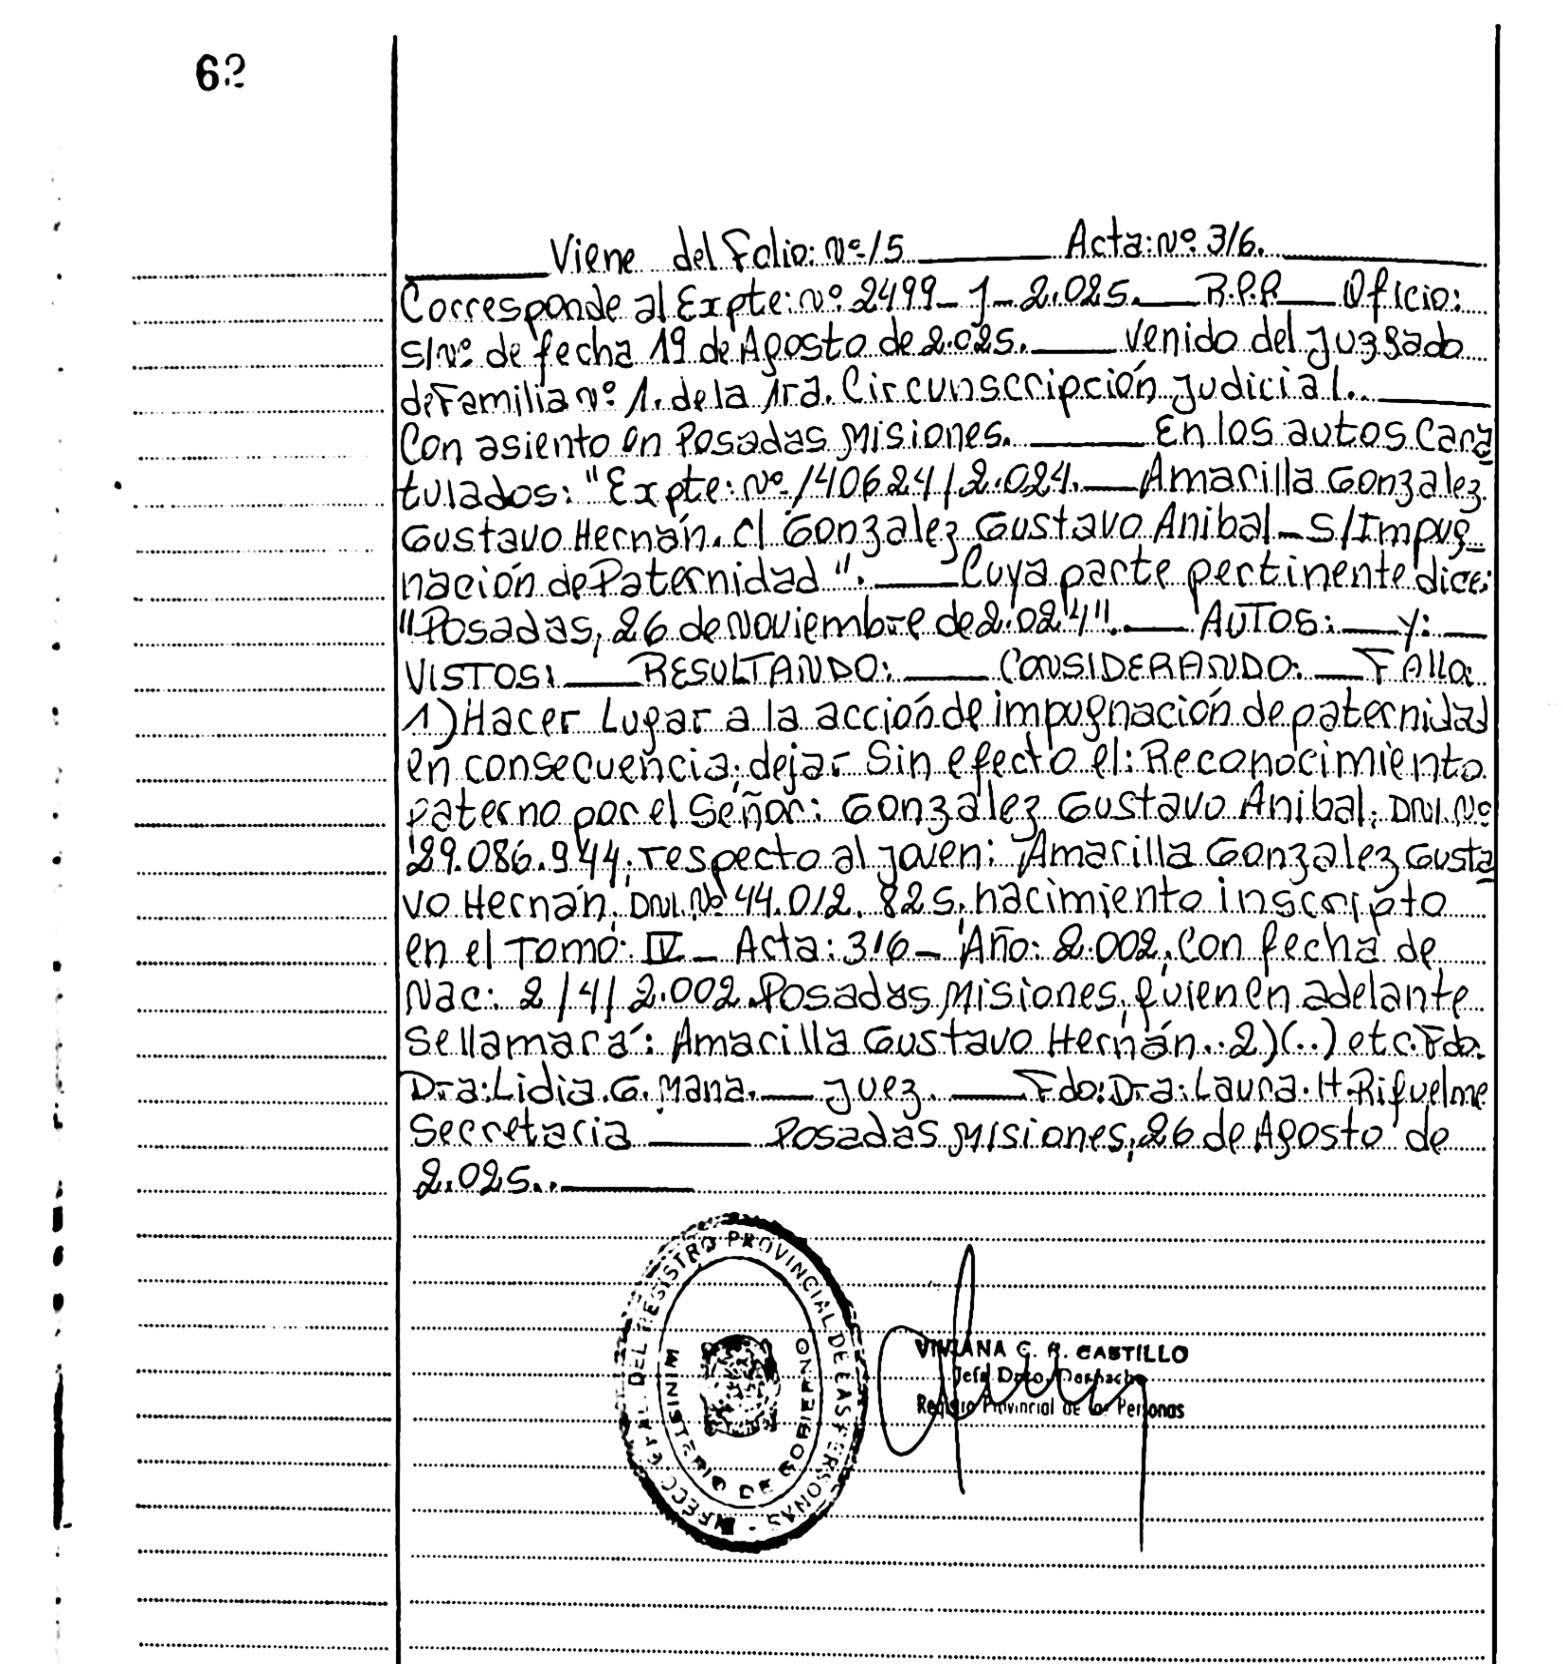 62
Viene del Folio: Nº 15 Acta: Nº 316.
Corresponde al Expte: nº 2499 - J - 2.025. R.P.P Oficio:
s/nº de fecha 19 de Agosto de 2.025. venido del Juzgado
de Familia nº 1. de la 1ra. Circunscripción Judicial.
Con asiento en Posadas Misiones. En los autos Cara
tulados: "Expte: Nº 140624/2.024. Amarilla Gonzalez
Gustavo Hernán. c/ Gonzalez Gustavo Anibal - S/Impug_
nación de Paternidad". Cuya parte pertinente dice:
"Posadas, 26 de Noviembre de 2.024". AUTOS: y:
VISTOS: RESULTANDO: CONSIDERANDO: FAllo:
1) Hacer Lugar a la acción de impugnación de paternidad
en consecuencia; dejar Sin efecto el: Reconocimiento
paterno por el Señor: Gonzalez Gustavo Anibal; DNI. Nº
29.086.944; respecto al joven: Amarilla Gonzalez Gusta
vo Hernán; DNI. Nº 44.012.825; nacimiento inscripto
en el Tomo: IV - Acta: 316 - Año: 2.002, Con fecha de
Nac: 2/4/2.002. Posadas Misiones, quien en adelante
se llamará: Amarilla Gustavo Hernán.. 2)(..) etc. Fdo.
Dra: Lidia. G. Mana. Juez. Fdo: Dra: Laura. H. Riquelme
Secretaria Posadas Misiones, 26 de Agosto de
2.025..
DEL REGISTRO PROVINCIAL DE LAS PERSONAS
MINISTERIO DE GOBIERNO
VIVIANA G. R. CASTILLO
Jefa Dpto. Despacho
Registro Provincial de las Personas